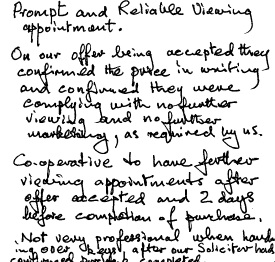 Prompt and Reliable Viewing
appointment.
On our offer being accepted they
confirmed the price in writing
and confirmed they were
complying with no further
viewing and no further
marketing, as required by us.
Co-operative to have further
viewing appointments after
offer accepted and 2 days
before completion of purchase.
Not very professional when hand-
ing over keys, after our Solicitor had
confirmed completed